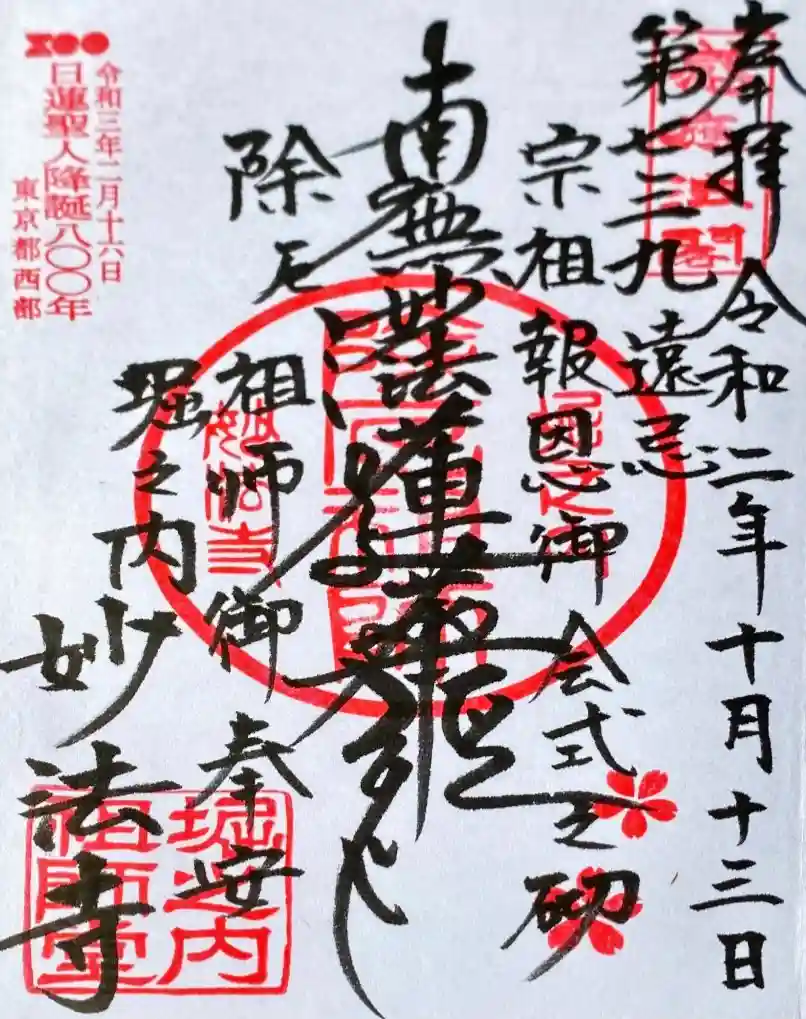 奉拝 令和二年十月十三日
第七三九遠忌
宗祖報恩御会式之砌
南無妙法蓮華経
除厄
祖師御奉安
堀之内
妙法寺
令和三年二月十六日
日蓮聖人降誕八〇〇年
東京都西部
妙法寺
堀之内
祖師堂